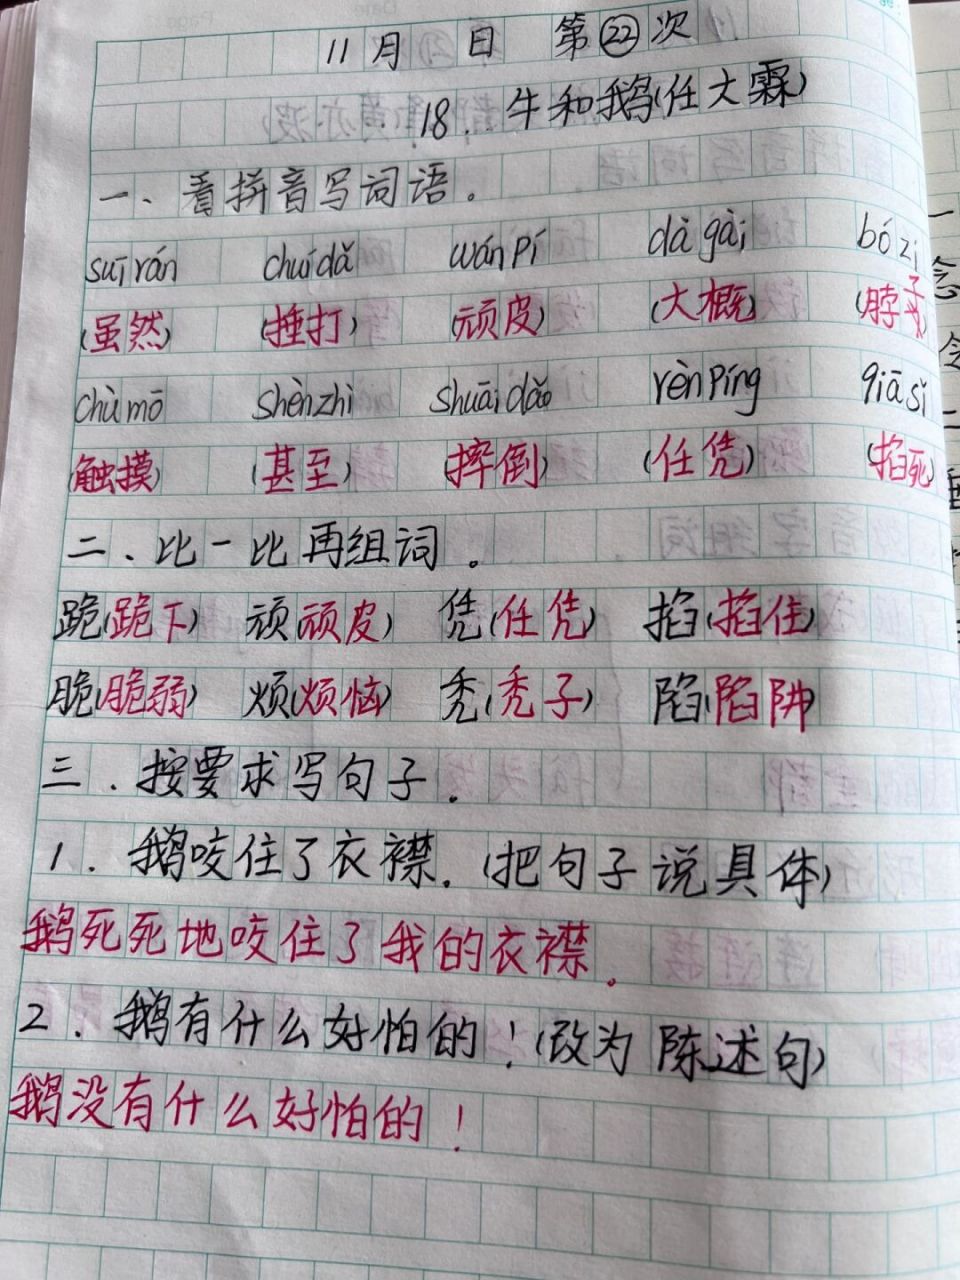 11月 日 第㉒次
18. 牛和鹅(任大霖)
一、看拼音写词语。
suī rán chuí dǎ wán pí dà gài bó zi
(虽然) (捶打) (顽皮) (大概) (脖子)
chù mō shèn zhì shuāi dǎo rèn píng qiā sǐ
(触摸) (甚至) (摔倒) (任凭) (掐死)
二、比一比再组词。
跪(跪下) 顽(顽皮) 凭(任凭) 掐(掐住)
脆(脆弱) 烦(烦恼) 秃(秃子) 陷(陷阱)
三.按要求写句子.
1. 鹅咬住了衣襟.(把句子说具体)
鹅死死地咬住了我的衣襟。
2. 鹅有什么好怕的!(改为陈述句)
鹅没有什么好怕的!